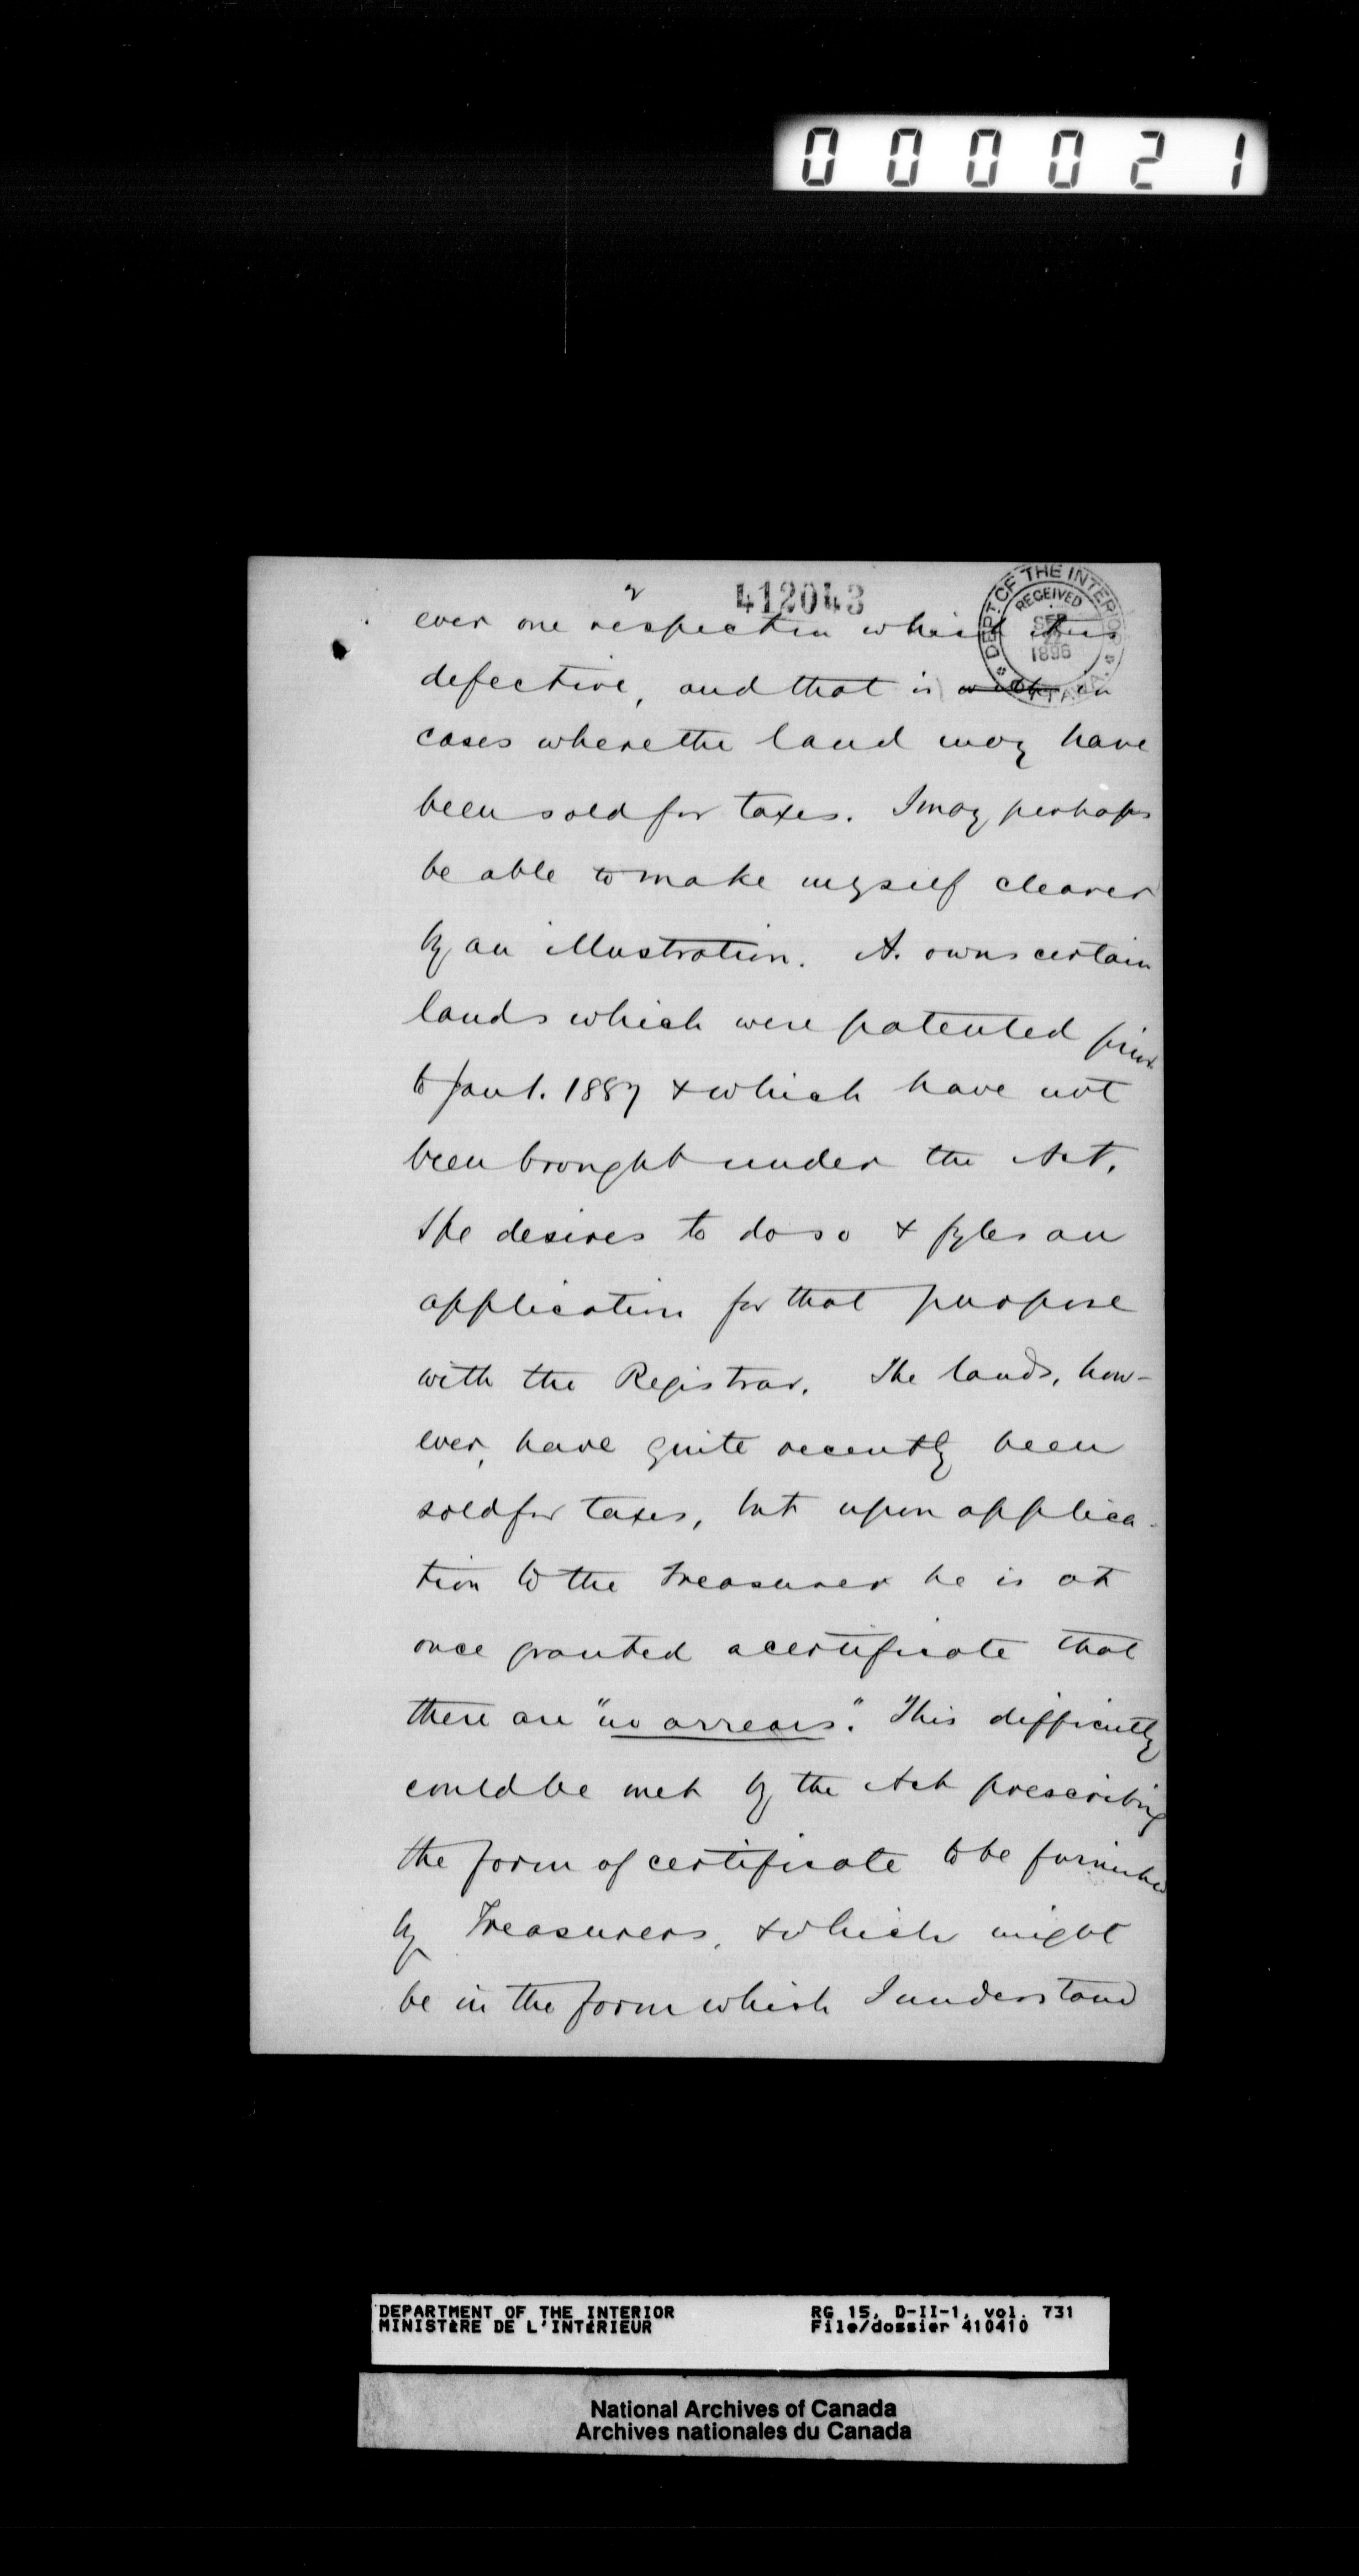 000021
2
412043
DEPT OF THE INTERIOR
RECEIVED
SEP
22
1896
OTTAWA
ever one respect in which it is
defective, and that is with in
cases where the land may have
been sold for taxes. I may perhaps
be able to make myself clearer
by an illustration. A. owns certain
lands which were patented prior
to Jan 1. 1887 & which have not
been brought under the Act.
He desires to do so & fyles an
application for that purpose
with the Registrar. The lands, how-
ever, have quite recently been
sold for taxes, but upon applica-
tion to the Treasurer he is at
once granted a certificate that
there are "no arrears". This difficulty
could be met by the Act prescribing
the form of certificate to be furnished
by Treasurers, & which might
be in the form which I understand
DEPARTMENT OF THE INTERIOR
MINISTÈRE DE L'INTÉRIEUR
RG 15, D-II-1, vol. 731
File/dossier 410410
National Archives of Canada
Archives nationales du Canada